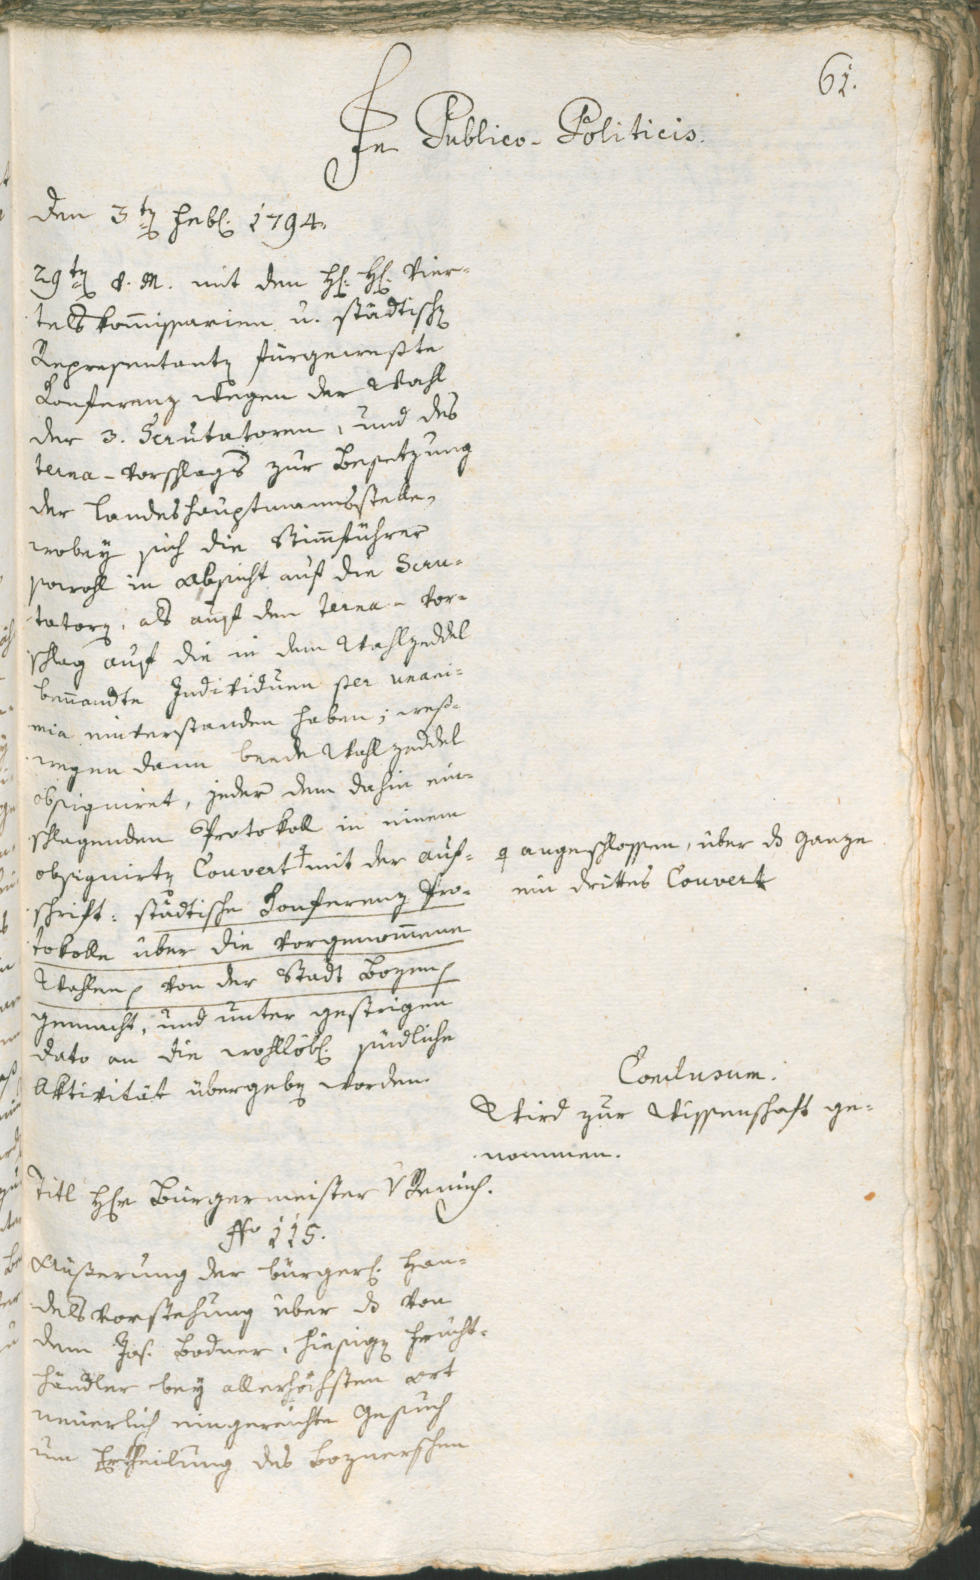 61.
In Publico-Politicis.
Den 3ten Febr. 1794.
29ten v. M. mit den H. H. Vier-
telskommissarien u. städtischen
Representanten fürgeweste
Konferenz wegen der Wahl
der 3. Scrutatoren, und des
terna-Vorschlags zur Besetzung
der Landeshauptmannsstelle,
wobey sich die Stimmführer
sowohl in Absicht auf die Scru-
tatorn, als auf den terna-Vor-
schlag auf die in dem Wahlzeddel
benandte Individuen per unani-
mia einverstanden haben; weß-
wegen dann beede Wahlzeddel
obsigniret, jeder dem dahin ein-
schlagenden Protokoll in einem
obsignirten Couvert mit der Auf-
schrift: städtische Konferenz Pro-
tokolle über die vorgenommene
Wahlen von der Stadt Bozen
gemacht, und unter gestrigen
dato an die wohllöbl. ständliche
Aktivität übergeben worden.
angeschlossen, über das ganze
ein drittes Couvert
Conclusum.
Wird zur Wissenschaft ge-
nommen.
Titl Herr Bürgermeister
No 115.
Äußerung der bürgerl. Han-
delsvorstehung über das von
dem Jos. Bodner, hiesigen Frücht-
händler bey allerhöchsten Ort
neuerlich eingereichte Gesuch
um Ertheilung des Boznerschen